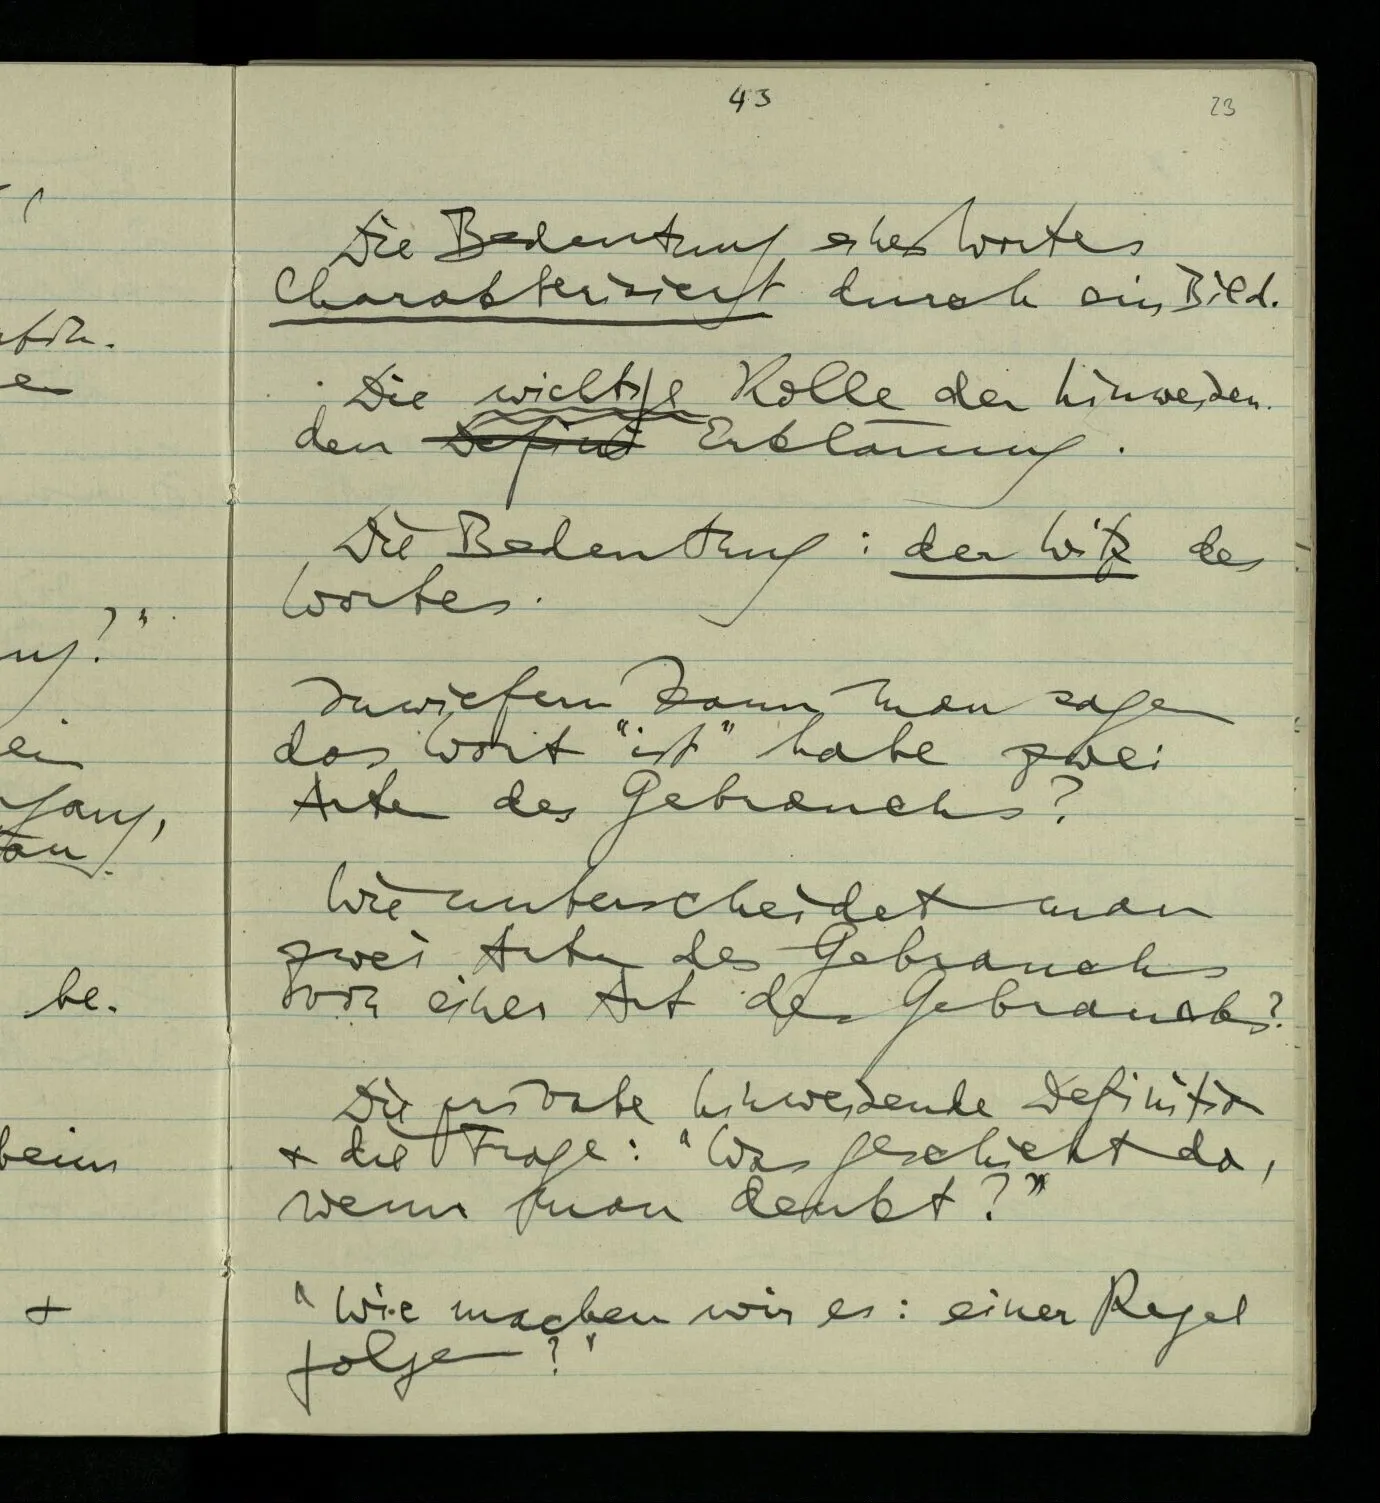 43
23
Die Bedeutung eines Wortes
charakterisiert durch ein Bild.
Die wichtige Rolle der hinweisen-
den Defini Erklärung.
Die Bedeutung: der Witz des
Wortes.
Inwiefern kann man sagen
das Wort "ist" habe zwei
Arten des Gebrauchs?
Wie unterscheidet man
zwei Arten des Gebrauchs
von einer Art des Gebrauchs?
Die private hinweisende Definition
+ die Frage: "Was geschieht da,
wenn man denkt?"
"Wie machen wir es: einer Regel
folgen?"
ein
be-
beim
+